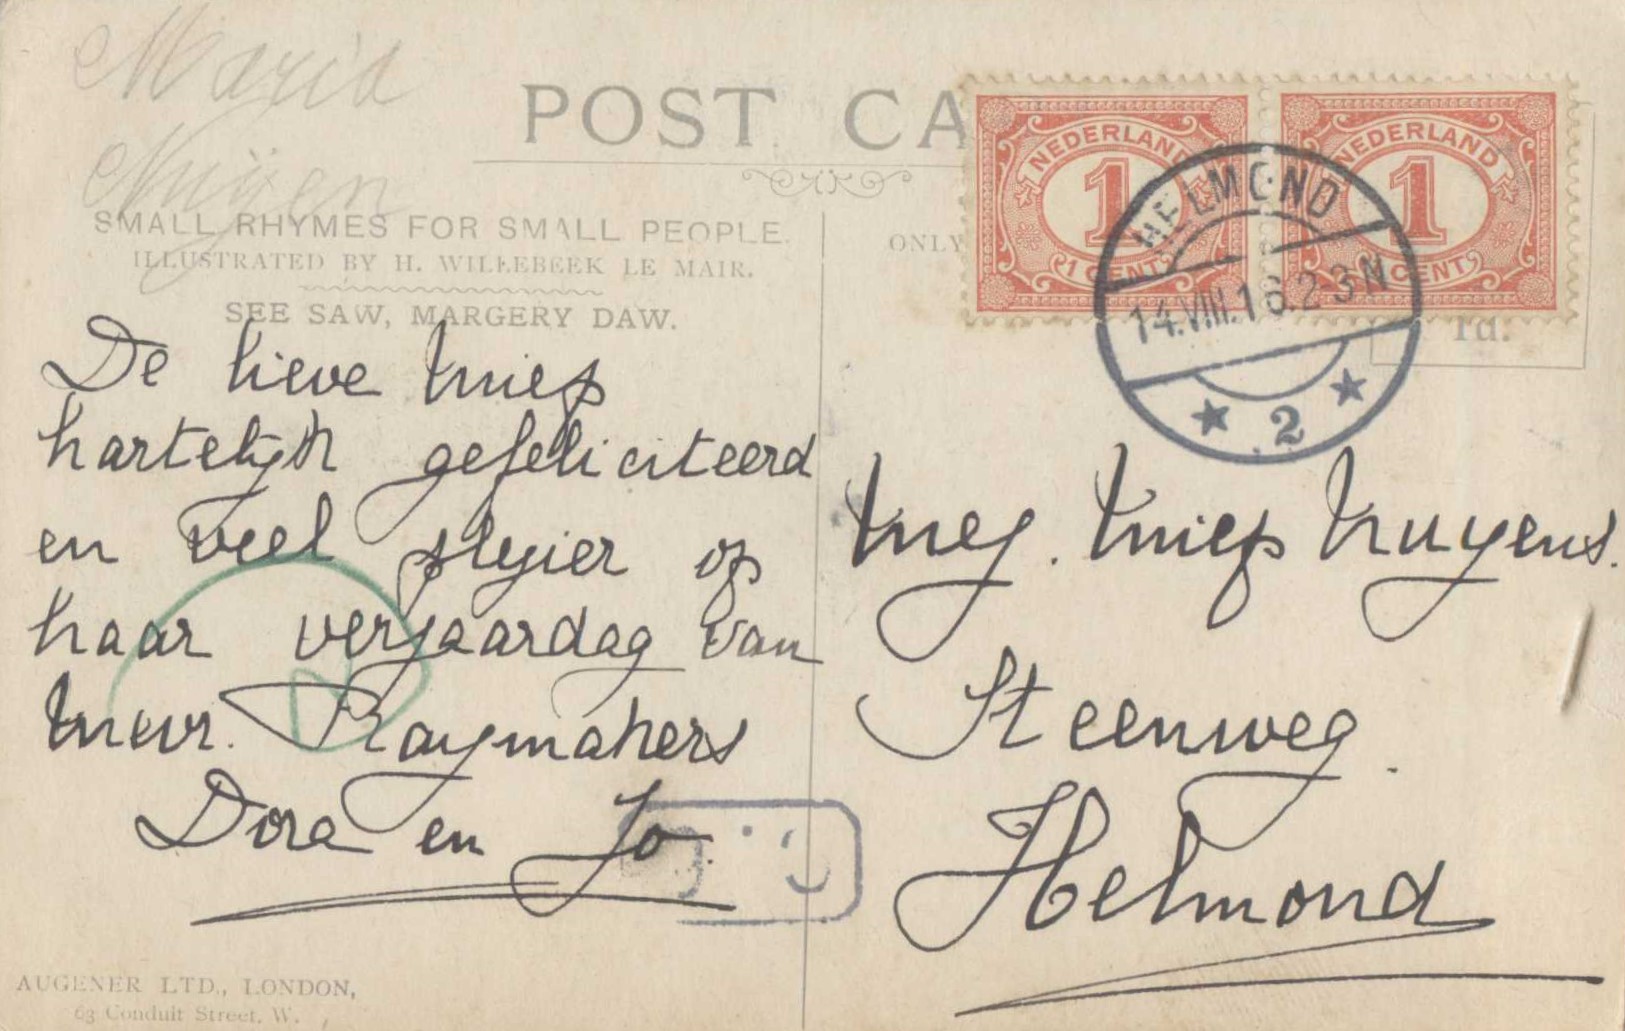 Maria
Nuijen
POST CA
SMALL RHYMES FOR SMALL PEOPLE.
ILLUSTRATED BY H. WILLEBEEK LE MAIR.
SEE SAW, MARGERY DAW.
ONLY
NEDERLAND
1
1 CENT
NEDERLAND
1
CENT
HELMOND
14.VIII.16.2-3N
2
rd.
De lieve Miep
hartelijk gefeliciteerd
en veel plezier op
haar verjaardag van
Mevr. Raymakers
Dora en Jo.
Mej. Miep Nuyens.
Steenweg.
Helmond
AUGENER LTD., LONDON,
63 Conduit Street, W.